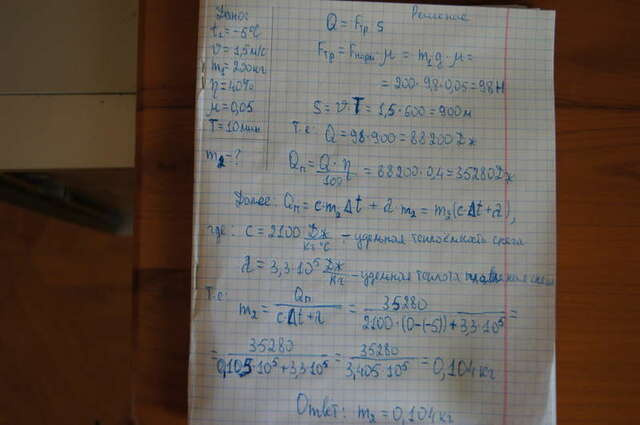 Дано:
t₁ = -5°C
v = 1,5 м/с
m₁ = 200 кг
η = 40%
μ = 0,05
T = 10 мин
m₂ = ?
Решение
Q = Fтр S
Fтр = Fнорм μ = m₁g · μ =
= 200 · 9,8 · 0,05 = 98 Н
S = v · T = 1,5 · 600 = 900 м
Т.е: Q = 98 · 900 = 88200 Дж
Qп = Q · η / 100 = 88200 · 0,4 = 35280 Дж
Далее: Qп = c · m₂ Δt + λ · m₂ = m₂(c · Δt + λ),
где: c = 2100 Дж/кг°C – удельная теплоёмкость снега
λ = 3,3 · 10⁵ Дж/кг – удельная теплота плавления снега
Т.е: m₂ = Qп / c · Δt + λ = 35280 / 2100 · (0-(-5)) + 3,3 · 10⁵ =
= 35280 / 0,105 · 10⁵ + 3,3 · 10⁵ = 35280 / 3,405 · 10⁵ = 0,104 кг
Ответ: m₂ = 0,104 кг